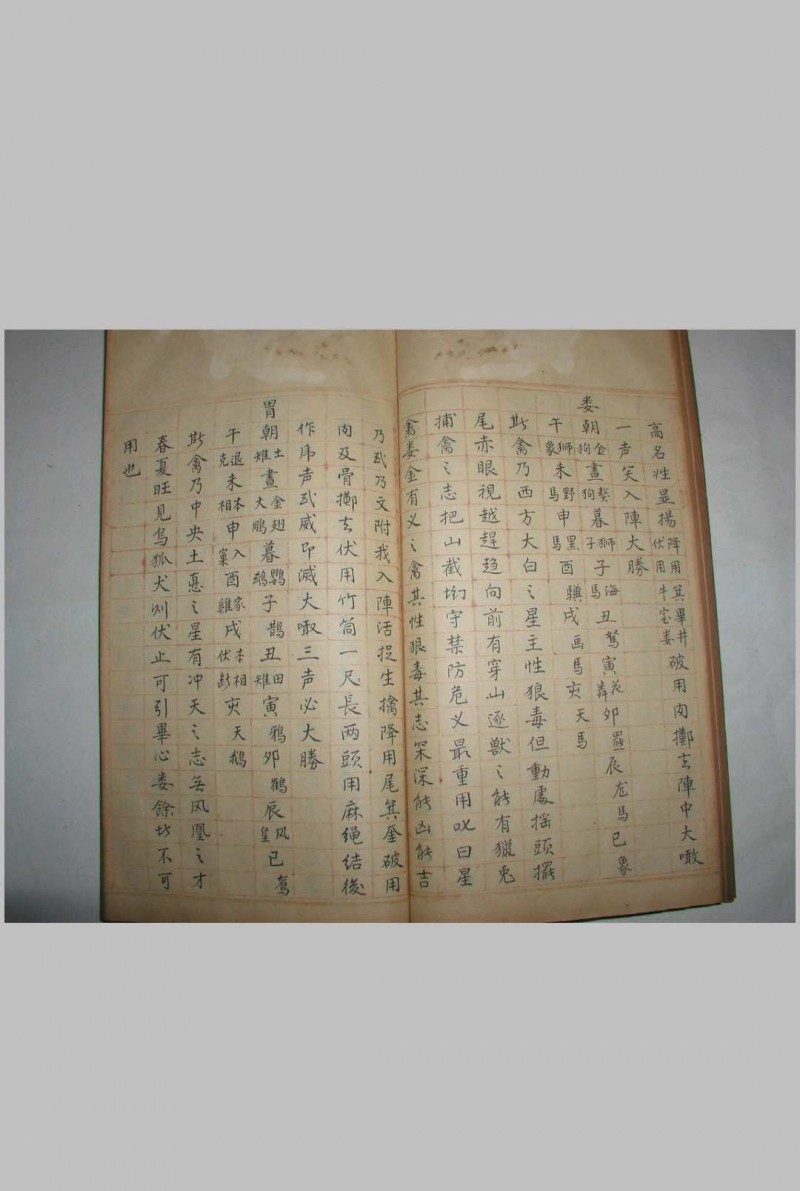 高名性显揚降用箕畢井伏用牛室娄破用肉擲去陣中大噉
一声笑入陣大勝
娄朝金狗晝婺狗暮獅子子海馬丑駑寅花卯辰龙馬已象
午獅象未野馬申黑馬酉戌画馬亥天馬
斯禽乃西方大白之星主性狼毒但動處摇頭擺
尾赤眼視越趕趋向前有穿山逐獸之能有獵兎
捕禽之志把山截坳守禁防危义最重用咒曰星
禽娄金有义之禽其性狼毒其志罙深能凶能吉
乃武乃文附我入陣活捉生擒降用尾箕奎破用
肉及骨擲去伏用竹筒一尺長两頭用麻绳结後
作馬声武威即滅大噉三声必大勝
胃朝土雉晝金翅大鵬暮鹦鵡子鵲丑田雉寅鴉卯鶴辰凤皇已鸳
午退克未本相申入窠酉家雞戌本相伏断亥天鵝
斯禽乃中央土悳之星有冲天之志无凤凰之才
春夏旺見乌狐犬则伏止可引畢心娄餘坊不可
用也